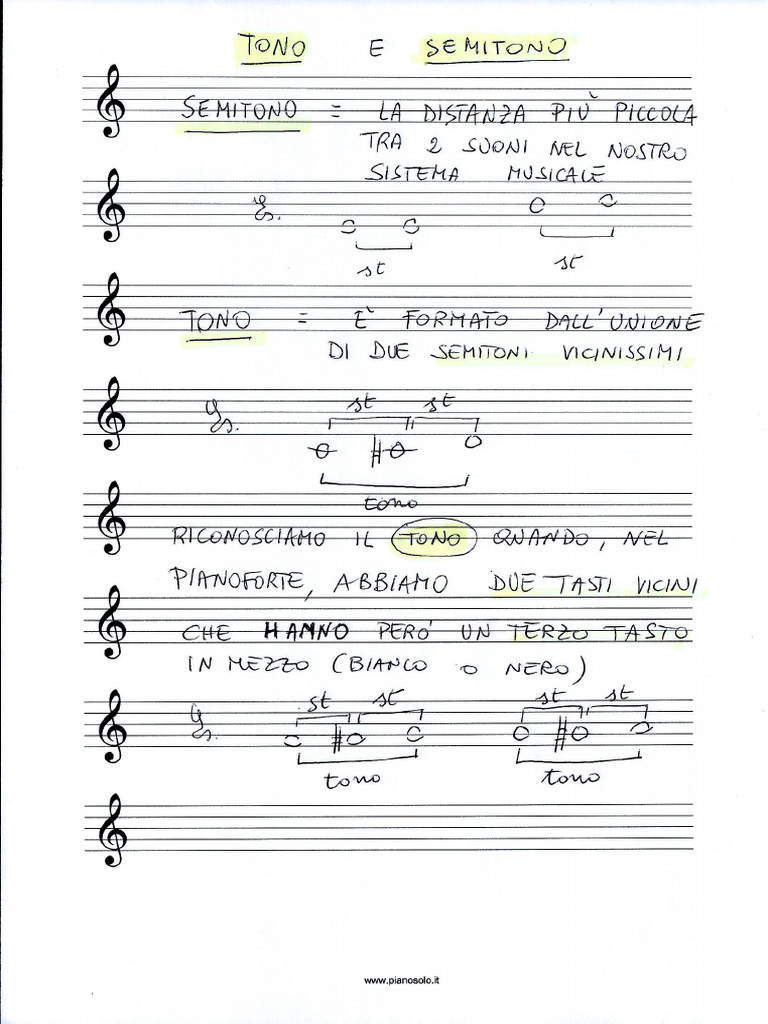 TONO E SEMITONO
SEMITONO = LA DISTANZA PIÙ PICCOLA
TRA 2 SUONI NEL NOSTRO
SISTEMA MUSICALE
Es.
st st
TONO = È FORMATO DALL'UNIONE
DI DUE SEMITONI VICINISSIMI
st st
Es.
tono
RICONOSCIAMO IL TONO QUANDO, NEL
PIANOFORTE, ABBIAMO DUE TASTI VICINI
CHE HANNO PERÓ UN TERZO TASTO
IN MEZZO (BIANCO O NERO)
st st st st
Es.
tono tono
www.pianosolo.it